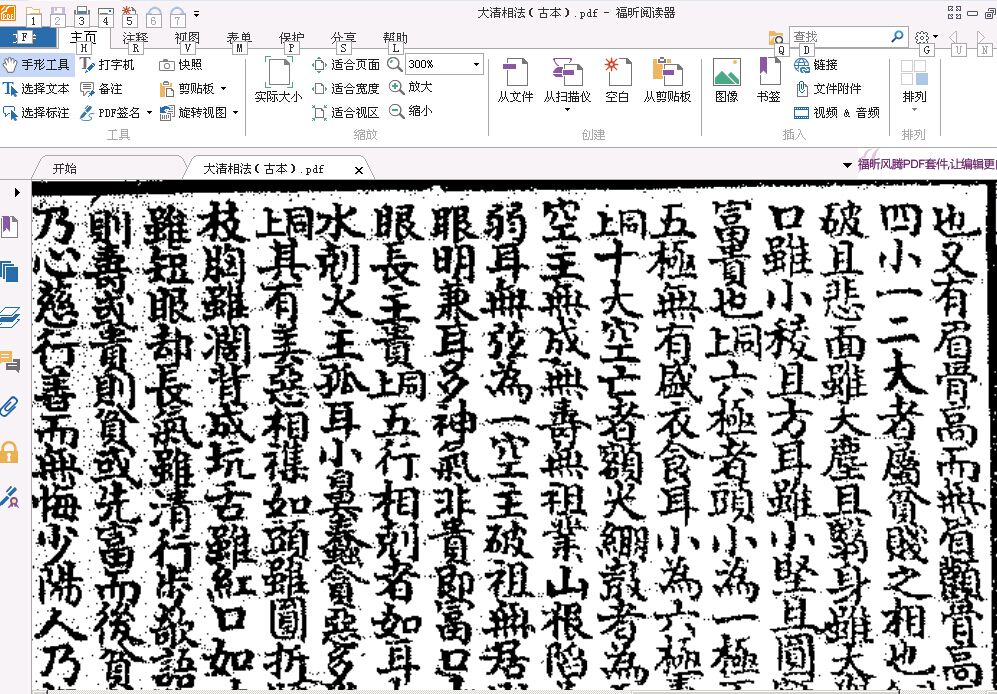 大清相法(古本).pdf - 福昕阅读器
主页 注释 视图 表单 保护 分享 帮助
查找
手形工具 打字机 快照 适合页面 300%
选择文本 备注 剪贴板 实际大小 适合宽度 放大 从文件 从扫描仪 空白 从剪贴板 图像 书签 链接 文件附件 排列
选择标注 PDF签名 旋转视图 适合视区 缩小 视频 & 音频
工具 缩放 创建 插入 排列
开始 大清相法(古本).pdf 福昕风腾PDF套件,让编辑更
也又有眉骨高而無眉顴骨高
四小一二大者屬貧賤之相也
破且悲面雖大塵且翳身雖大
口雖小稜且方耳雖小堅且圓
富貴也上同六極者頭小為一極
五極無有盛衣食耳小為六極
上同十大空亡者額尖綳鼓者為
空主無成無壽無祖業山根陷
弱耳無弦為一空主破祖無居
眼明兼耳多神氣非貴即富口
眼長主貴上同五行相剋者如耳
水剋火主孤耳小鼻蠢貧惡多
上同其有美惡相襍如頭雖圓折
枝胸雖濶背成坑舌雖紅口如
雖短眼却長氣雖清行步欹語
則壽或貴則貧或先富而後貧
乃心慈行善而無悔少陽人乃